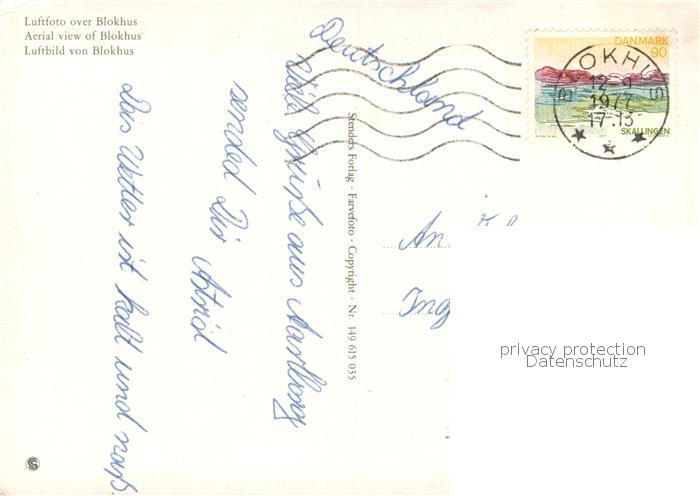 Luftfoto over Blokhus
Aerial view of Blokhus
Luftbild von Blokhus
Deutschland
Viele Grüße aus Aalborg
sended Dir Astrid
Das Wetter ist kalt und naß.
Stenders Forlag - Farvefoto - Copyright - Nr. 149 615 035
DANMARK
90
SKALLINGEN
BLOKHUS
12-9
1977
17-13
An
Ing
privacy protection
Datenschutz
S